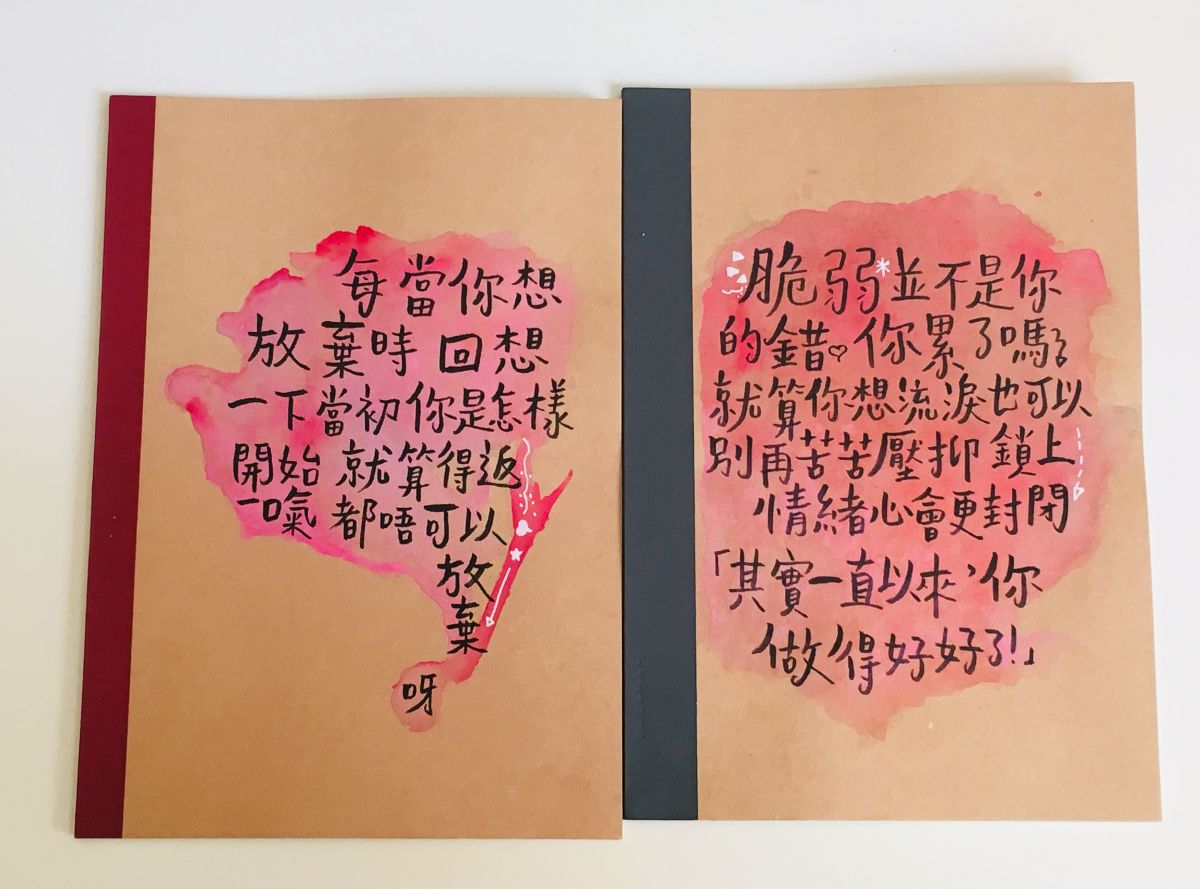 每當你想
放棄時 回想
一下當初你是怎樣
開始 就算得返
一口氣 都唔可以
放
棄
呀
脆弱並不是你
的錯♡你累了嗎？
就算你想流淚也可以
別再苦苦壓抑 鎖上
情緒心會更封閉
「其實一直以來，你
做得好好了！」